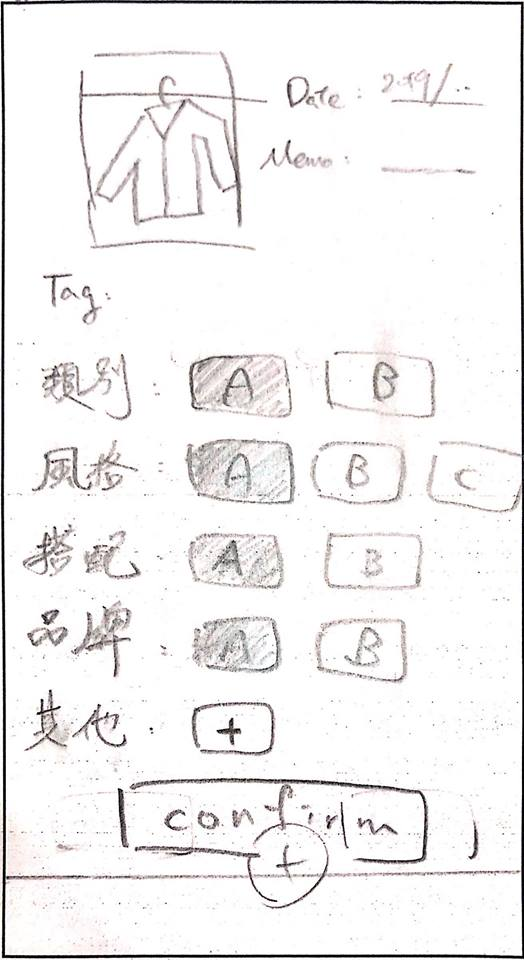 Date: 2019/..
Memo:
Tag:
類別: A B
風格: A B C
搭配 A B
品牌: A B
其他: +
confirm
+